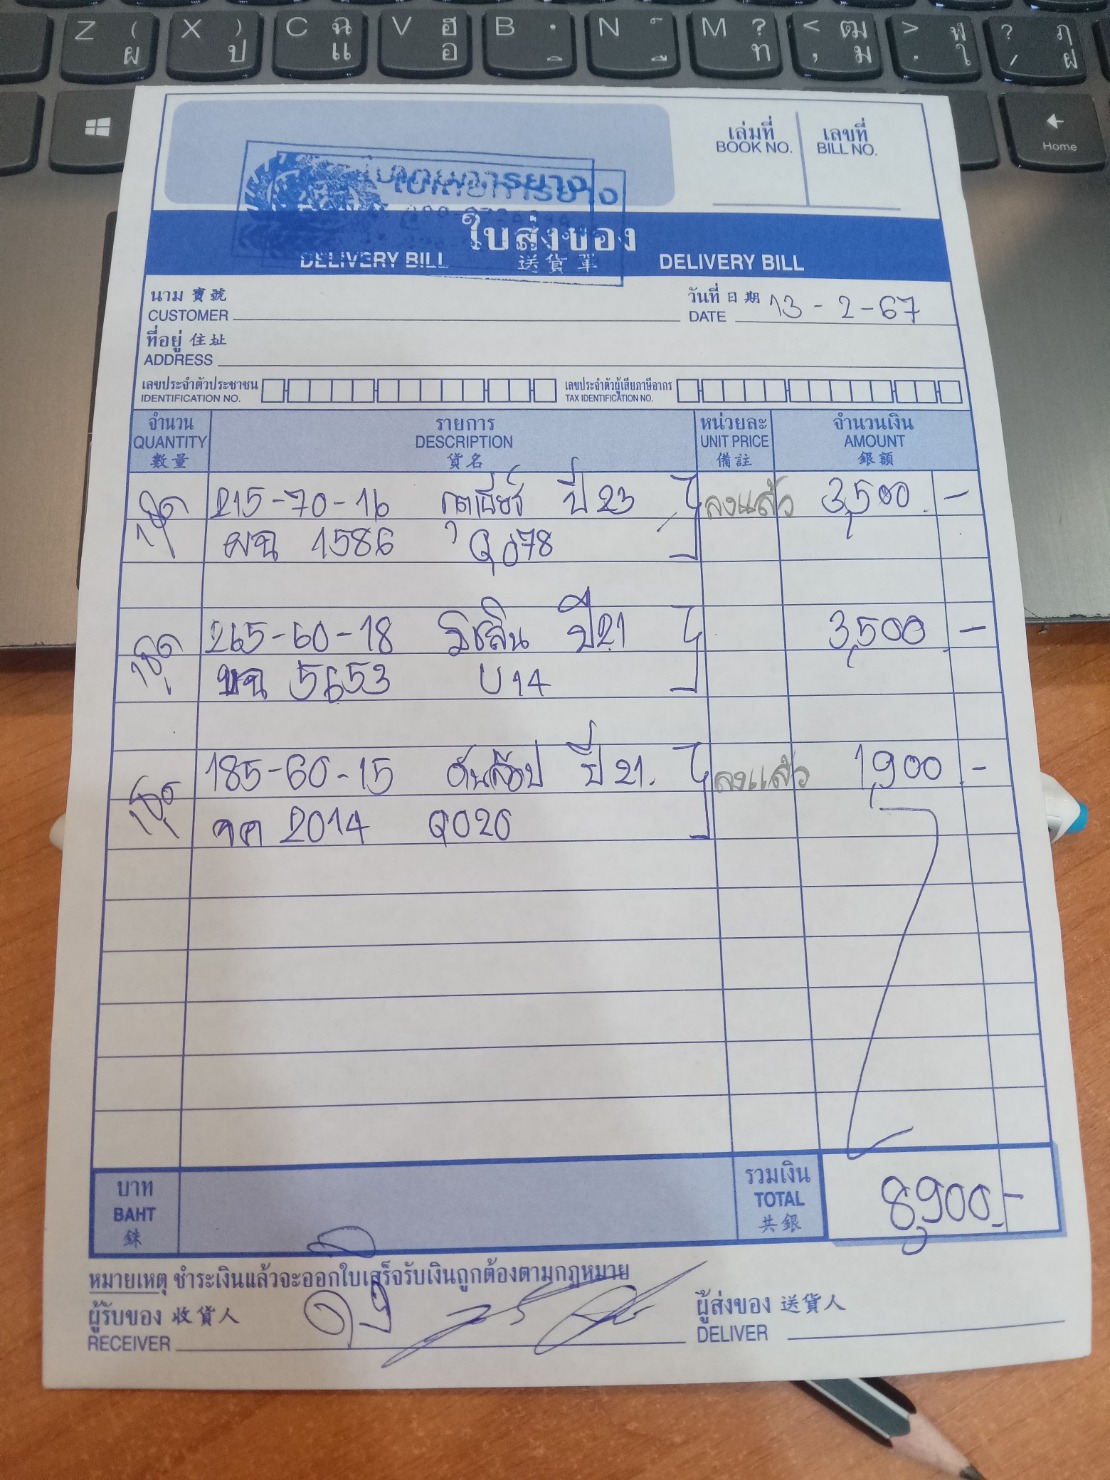 Z ( ผ
X ) ป
C ฉ แ
V ฮ อ
B
N
M ? ท
< ฒ , ม
> ฬ . ใ
? ฦ / ฝ
Home
เล่มที่ เลขที่
BOOK NO. BILL NO.
ใบส่งของ
DELIVERY BILL 送貨單 DELIVERY BILL
นาม 寶號 วันที่ 日期
CUSTOMER DATE 13-2-67
ที่อยู่ 住址
ADDRESS
เลขประจำตัวประชาชน เลขประจำตัวผู้เสียภาษีอากร
IDENTIFICATION NO. TAX IDENTIFICATION NO.
จำนวน รายการ หน่วยละ จำนวนเงิน
QUANTITY DESCRIPTION UNIT PRICE AMOUNT
數量 貨名 備註 銀額
215-70-16 กู๊ดเยียร์ ปี 23 ลงแล้ว 3,500 -
ผฉ 1586 Q078
265-60-18 มิชลิน ปี 21 3,500 -
ขฉ 5653 U14
185-60-15 ดันลอป ปี 21. ลงแล้ว 1,900 -
จค 2014 Q020
บาท รวมเงิน
BAHT TOTAL 8,900.-
銖 共銀
หมายเหตุ ชำระเงินแล้วจะออกใบเสร็จรับเงินถูกต้องตามกฎหมาย
ผู้รับของ 收貨人 ผู้ส่งของ 送貨人
RECEIVER DELIVER